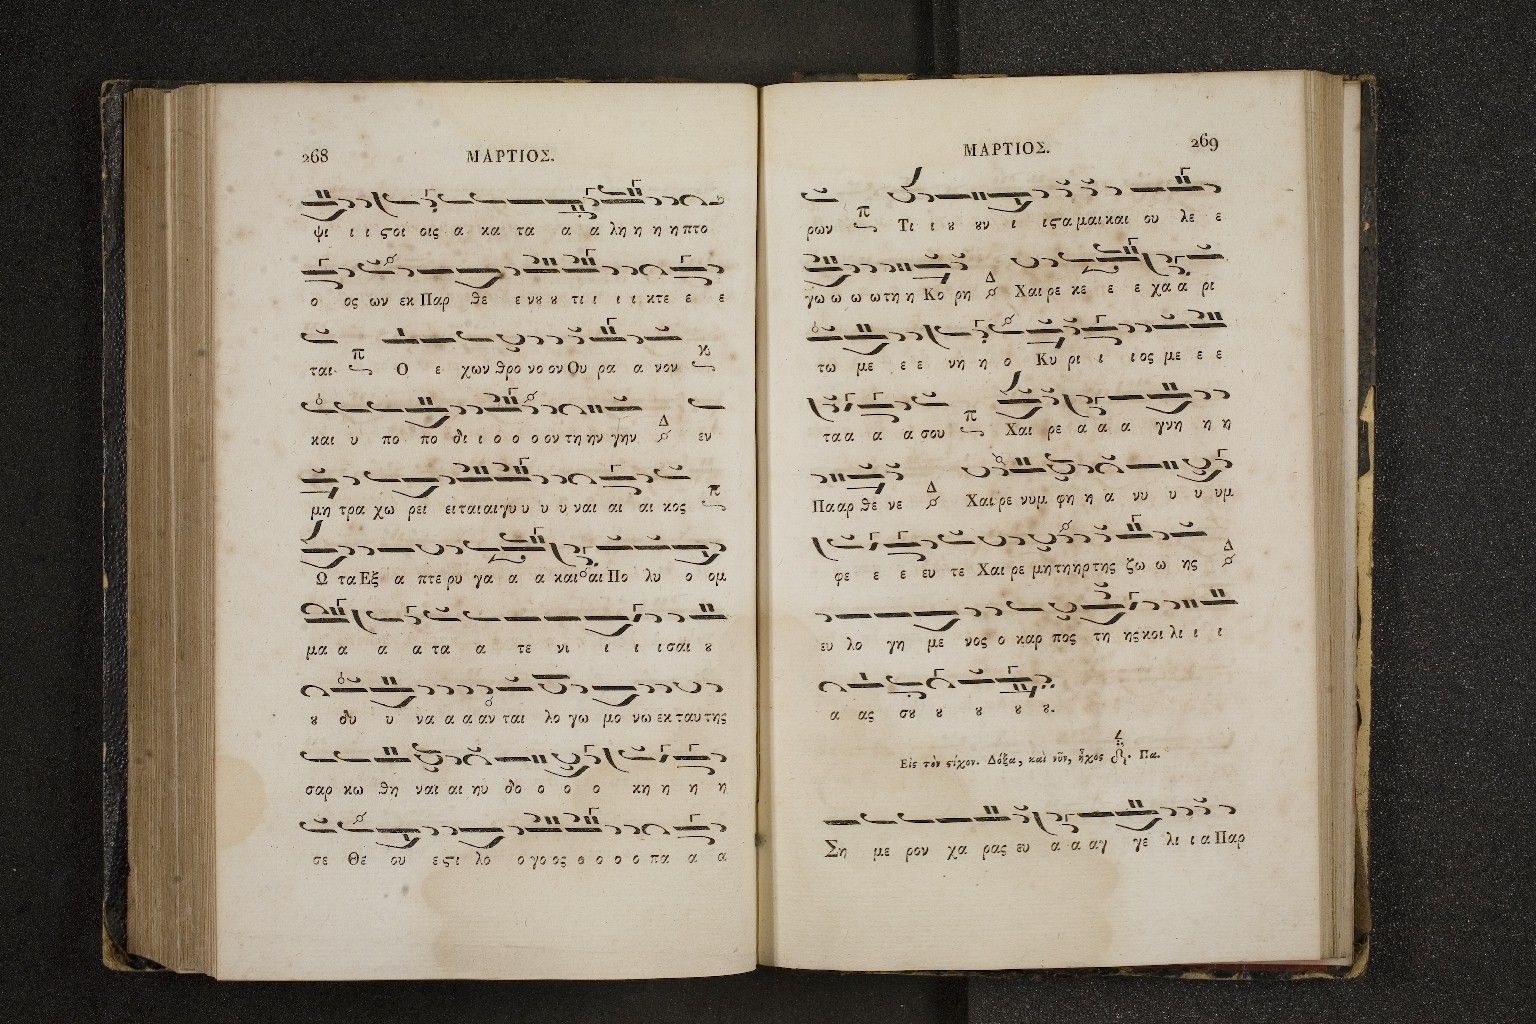 268 ΜΑΡΤΙΟΣ.
ψι ι ι ϛοι οις α κα τα α α λη η η η πτο
ο ος ων εκ Παρ θε ε ν ȣ ȣ τι ι ι ι κτε ε ε
ται π Ο ε χων θρο νο ον Ου ρα α νον κ
και υ πο πο δι ι ο ο ο ον τη ην γην Δ εν
μη τρα χω ρει ει ται αι γυ υ υ υ ναι αι αι κος π
Ω τα Εξ α πτε ρυ γα α α και αι Πο λυ ο ομ
μα α α α τα α τε νι ι ι ι σαι ȣ
ȣ δυ υ να α α αν ται λο γω μο νω εκ ταυ της
σαρ κω θη ναι αι ηυ δο ο ο ο κη η η η
σε Θε ου ε ϛι λο ο γο ος ο ο ο ο πα α α
ΜΑΡΤΙΟΣ. 269
ρων π Τι ι ȣ ȣν ι ιϛα μαι και ου λε ε
γω ω ω ω τη η Κο ρη Δ Χαι ρε κε ε ε χα α ρι
τω με ε ε νη η ο Κυ ρι ι ι ος με ε ε
τα α α α α σου π Χαι ρε α α α γνη η η
Πα αρ θε νε Δ Χαι ρε νυμ φη η α νυ υ υ υμ
φε ε ε ευ τε Χαι ρε μη τη ηρ της ζω ω ης Δ
ευ λο γη με νος ο καρ πος τη ης κοι λι ι ι
α ας σȣ ȣ ȣ ȣ ȣ.
Εἰς τὸν ϛίχον. Δόξα, καὶ νῦν, ἦχος Πα.
Ση με ρον χα ρας ευ α α αγ γε λι ι α Παρ